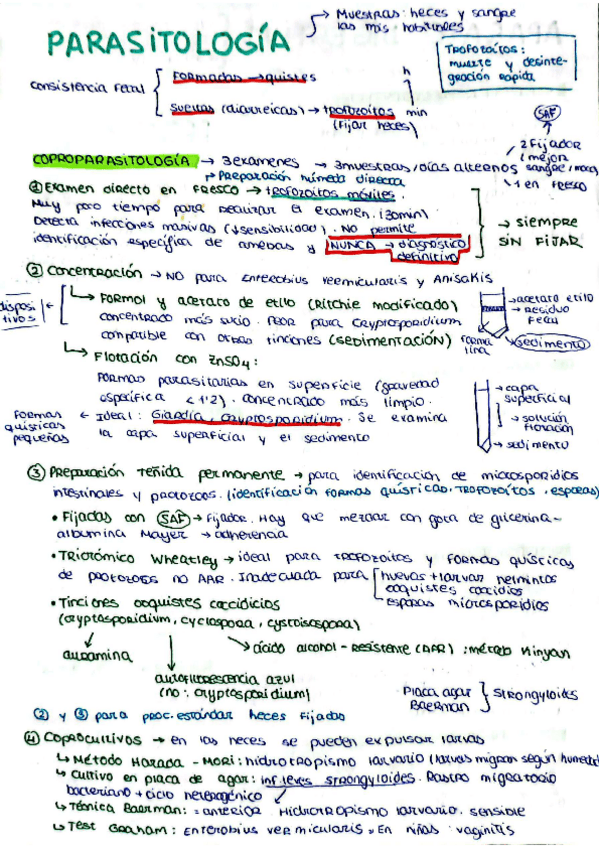 PARASITOLOGÍA
→ Muestras: heces y sangre
las más habituales
TROFOZOÍTOS:
muerte y desinte-
gración rápida
consistencia fecal
Formadas → quistes
h
Sueltas (diarreicas) → trofozoítos min
(Fijar heces)
SAF
COPROPARASITOLOGÍA → 3 exámenes → 3 muestras/días alternos
2 Fijador
mejor
sangre/moco
1 en FRESCO
→ Preparación húmeda directa
① Examen directo en FRESCO → trofozoítos móviles.
Muy poco tiempo para realizar el examen. (30min)
Detecta infecciones masivas (↓sensibilidad). No permite
identificación específica de amebas y NUNCA → diagnóstico
definitivo
→ SIEMPRE
SIN FIJAR
② Concentración → NO para Enterobius vermicularis y Anisakis
disposi-
tivos
→ Formol y acetato de etilo (Ritchie modificado)
concentrado más sucio. Peor para Cryptosporidium
compatible con otras tinciones (sedimentación)
→ acetato etilo
→ Residuo
Fecal
Forma
lina
sedimento
→ Flotación con ZnSO4:
Formas parasitarias en superficie (gravedad
específica < 1'2). concentrado más limpio.
Formas
quísticas
pequeñas
← Ideal: Giardia, Cryptosporidium. Se examina
la capa superficial y el sedimento
→ capa
superficial
→ solución
flotación
→ sedimento
③ Preparación teñida permanente → para identificación de microsporidios
intestinales y protozoos. (identificación formas quísticas, TROFOZOÍTOS, esporas)
• Fijadas con SAF → fijador. Hay que mezclar con gota de glicerina-
albumina Mayer → adherencia
• Tricrómico Wheatley → ideal para trofozoitos y formas quísticas
de protozoos no AAR. Inadecuada para
huevos + larvas helmintos
ooquistes coccidios
esporas microsporidios
• Tinciones ooquistes coccidios
(cryptosporidium, cyclospora, cystoisospora)
auramina
ácido alcohol-resistente (AAR): método Kinyoun
autofluorescencia azul
(no: cryptosporidium)
Placa agar
Baerman
Strongyloides
② y ③ para proc. estándar heces fijadas
④ Coprocultivos → en las heces se pueden expulsar larvas
↳ Método Harada-Mori: hidrotropismo larvario (larvas migran según humedad)
↳ Cultivo en placa de agar: inf. leves strongyloides. Rastro migratorio
bacteriano + ciclo heterogónico
↳ Técnica Baerman: = anterior. Hidrotropismo larvario. sensible
↳ Test Graham: Enterobius vermicularis. En niñas: vaginitis